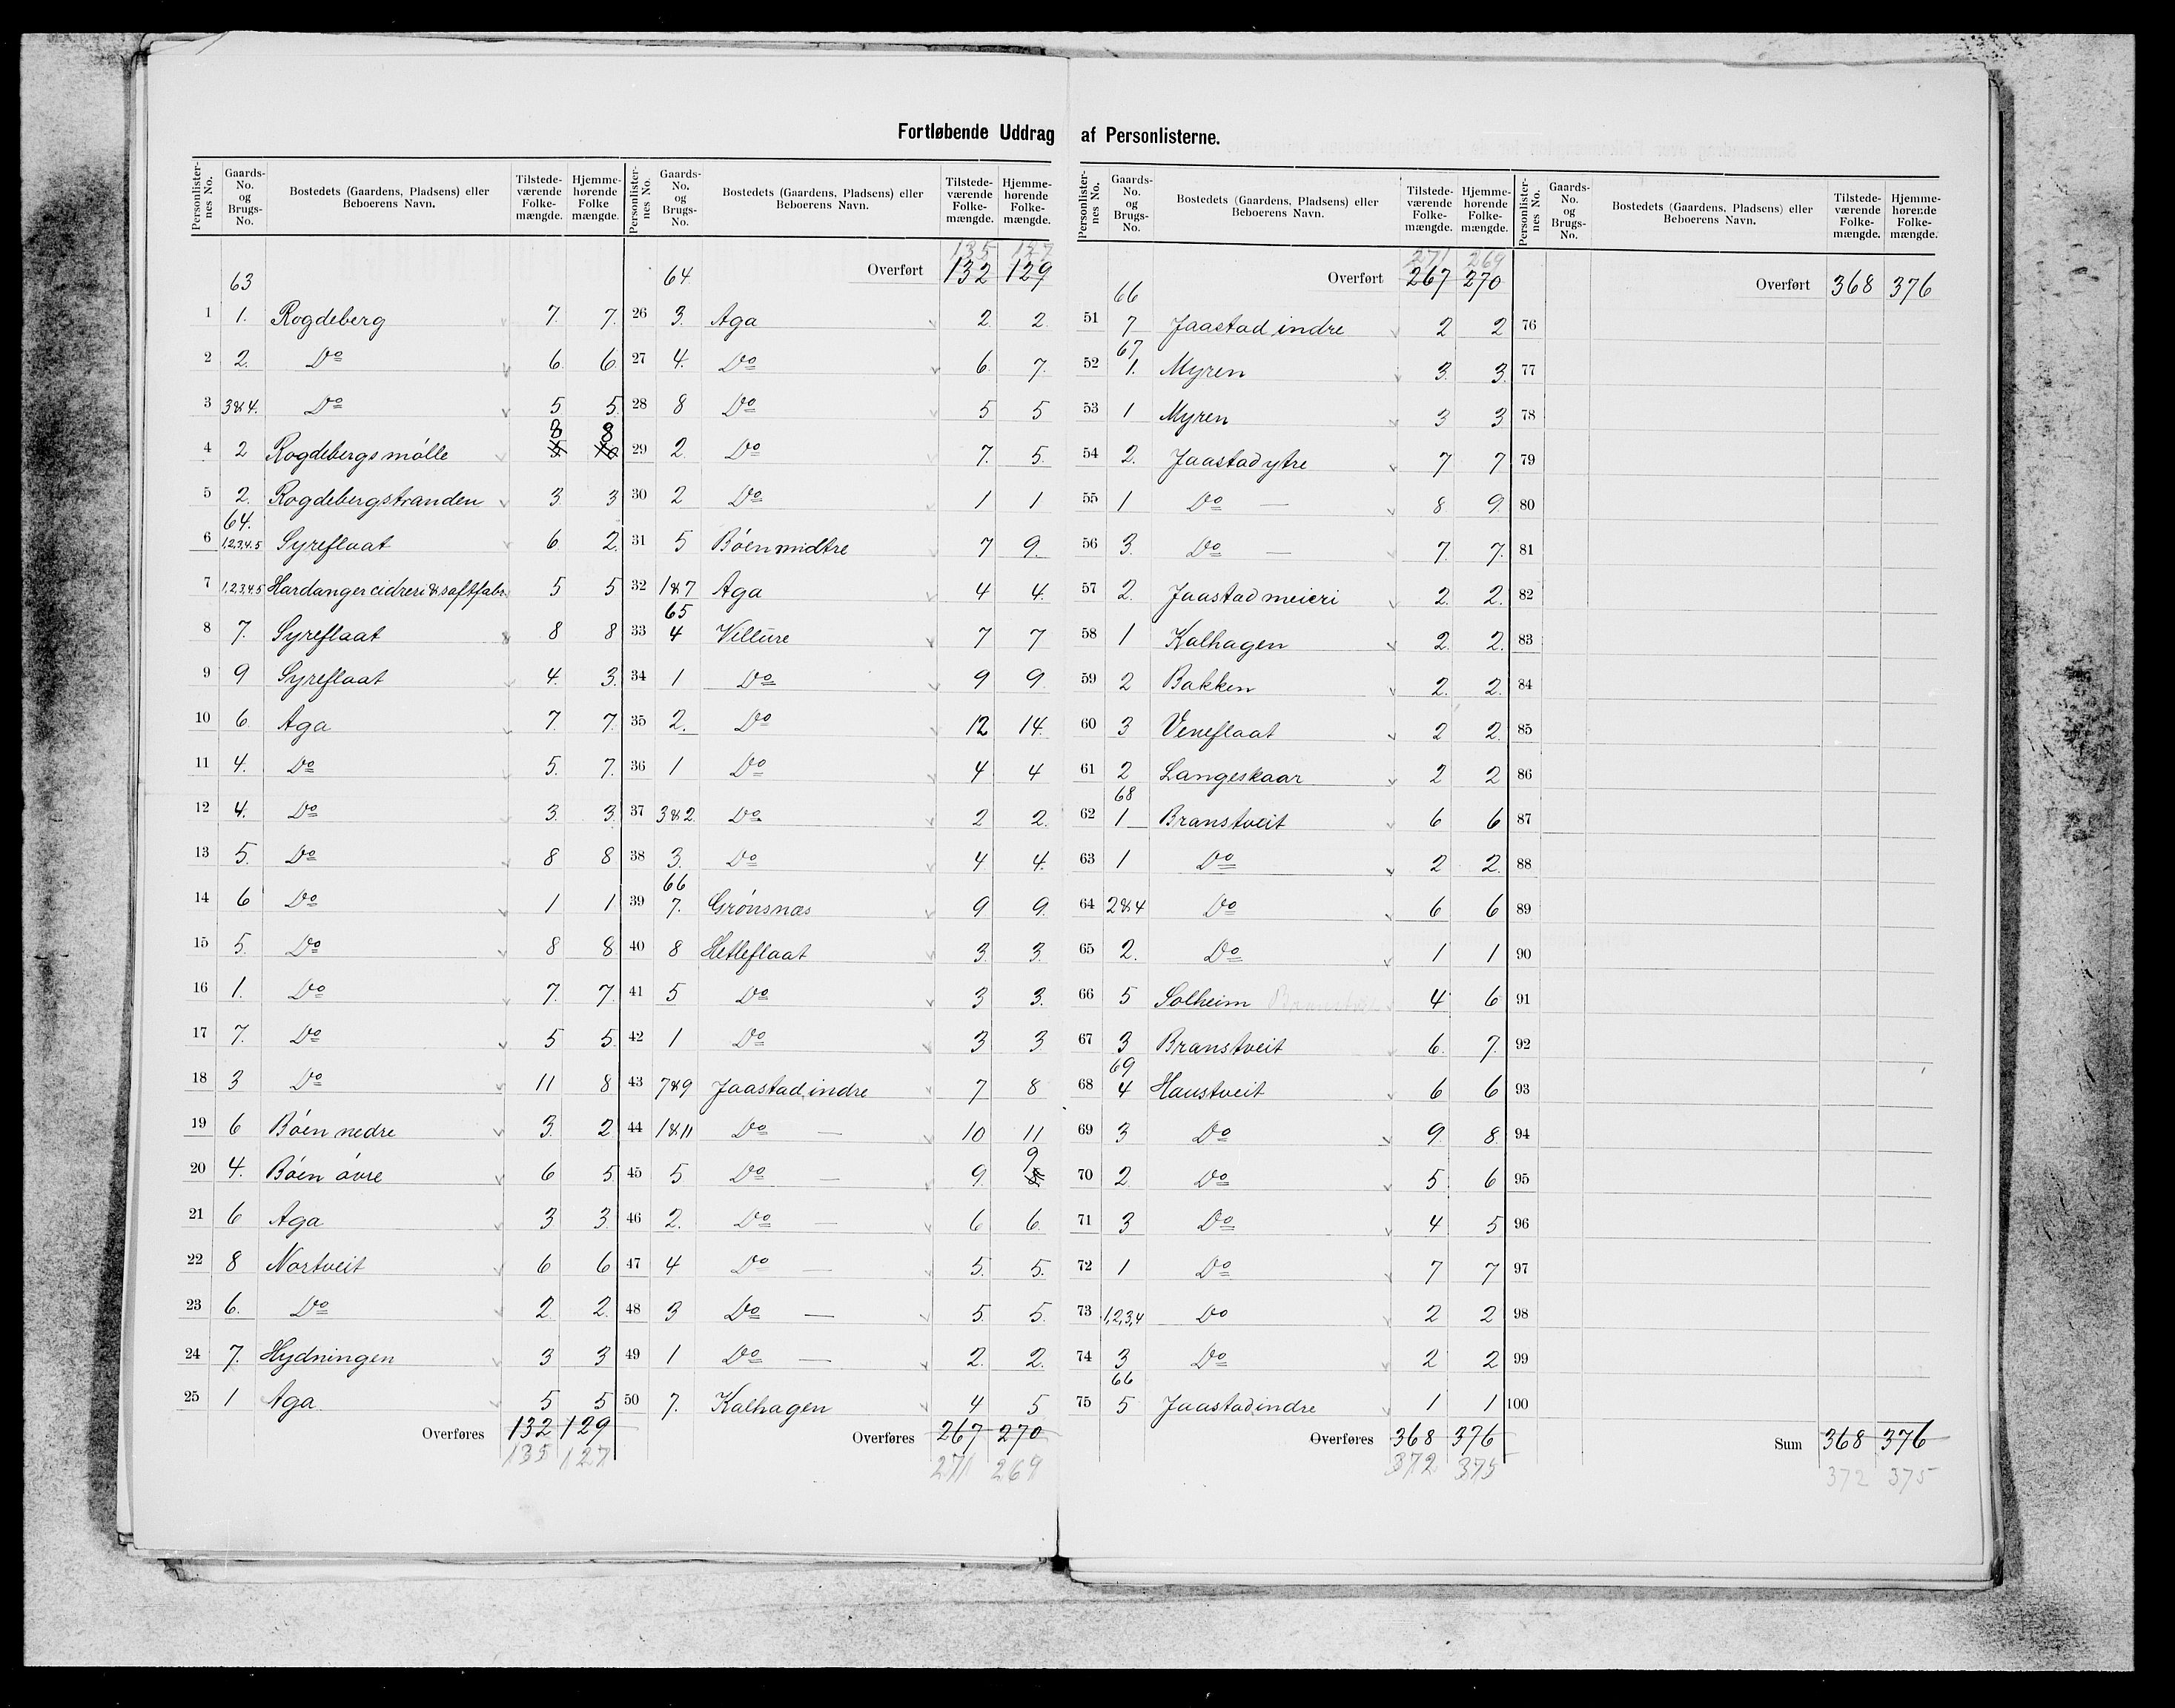 Fortløbende Uddrag af Personlisternes.
Personlister-nes No. Gaards-No. og Brugs-No. Bostedets (Gaardens, Pladsens) eller Beboerens Navn. Tilstede-værende Folke-mængde. Hjemme-hørende Folke mængde.
63
1 1. Rogdeberg 7. 7.
2 2. Do 6. 6
3 3&4. Do 5 5
8 8
4 2 Rogdebergs mölle 5 10
5 2. Rogdebergstranden 3 3
64.
6 1,2,3,4.5 Syreflaat 6 2.
7 1,2,3,4.5 Hardanger cidreri & saftfabr. 5 5
8 7. Syreflaat 8 8
9 9 Syreflaat 4. 3.
10 6. Aga 7. 7.
11 4. Do 5. 7.
12 4. Do 3. 3.
13 5. Do 8 8
14 6 Do 1 1
15 5. Do 8 8
16 1. Do 7. 7.
17 7. Do 5 5
18 3 Do 11 8
19 6 Böen nedre 3. 2
20 4. Böen övre 6 5
21 6 Aga 3 3.
22 8 Nortveit 6 6
23 6. Do 2. 2.
24 7. Hydningen 3 3
25 1 Aga 5 5
Overføres 132 129
135 127
Personlister-nes No. Gaards-No. og Brugs-No. Bostedets (Gaardens, Pladsens) eller Beboerens Navn. Tilstede-værende Folke-mængde. Hjemme-hørende Folke-mængde.
135 127
64 Overført 132 129
26 3. Aga 2. 2.
27 4. Do 6. 7.
28 8 Do 5 5
29 2. Do 7. 5.
30 2 Do 1 1
31 5 Böen midtre 7 9.
32 1&7 Aga 4 4.
65
33 4 Villure 7 7
34 1 Do 9 9
35 2. Do 12 14.
36 1 Do 4 4
37 3&2 Do 2 2.
38 3. Do 4 4.
66
39 7. Grönsnæs 9 9.
40 8 Hetleflaat 3. 3.
41 5 Do 3 3.
42 1 Do 3 3
43 7&9 Jaastad indre 7 8
44 1&11 Do — 10 11
9
45 5 Do — 9. 8
46 2. Do — 6 6.
47 4 Do — 5. 5.
48 3 Do — 5. 5.
49 1 Do — 2. 2.
50 7. Kalhagen 4 5
Overføres 267 270
271 269
Personlister-nes No. Gaards-No. og Brugs-No. Bostedets (Gaardens, Pladsens) eller Beboerens Navn. Tilstede-værende Folke-mængde. Hjemme-hørende Folke-mængde.
271 269
66 Overført 267 270
51 7 Jaastad indre 2 2
67
52 1. Myren 3. 3.
53 1 Myren 3 3
54 2. Jaastad ytre 7 7
55 1 Do — 8 9.
56 3. Do — 7. 7.
57 2. Jaastad meieri 2. 2.
58 1 Kalhagen 2. 2.
59 2 Bakken 2. 2.
60 3 Veneflaat 2 2.
61 2 Langeskaar 2 2
68
62 1 Branstveit 6 6
63 1 Do 2 2.
64 2&4 Do 6 6
65 2. Do 1 1
66 5 Solheim Branstveit 4 6
67 3 Branstveit 6. 7.
69
68 4 Haustveit 6 6
69 3 Do 9. 8.
70 2. Do 5 6
71 3 Do 4 5
72 1 Do 7 7
73 1,2,3,4 Do 2 2
74 3 Do 2 2
66
75 5 Jaastad indre 1 1
Overføres 368 376
372 375
Personlister-nes No. Gaards-No. og Brugs-No. Bostedets (Gaardens, Pladsens) eller Beboerens Navn. Tilstede-værende Folke-mængde. Hjemme-hørende Folke-mængde.
Overført 368 376
76
77
78
79
80
81
82
83
84
85
86
87
88
89
90
91
92
93
94
95
96
97
98
99
100
Sum 368 376
372 375